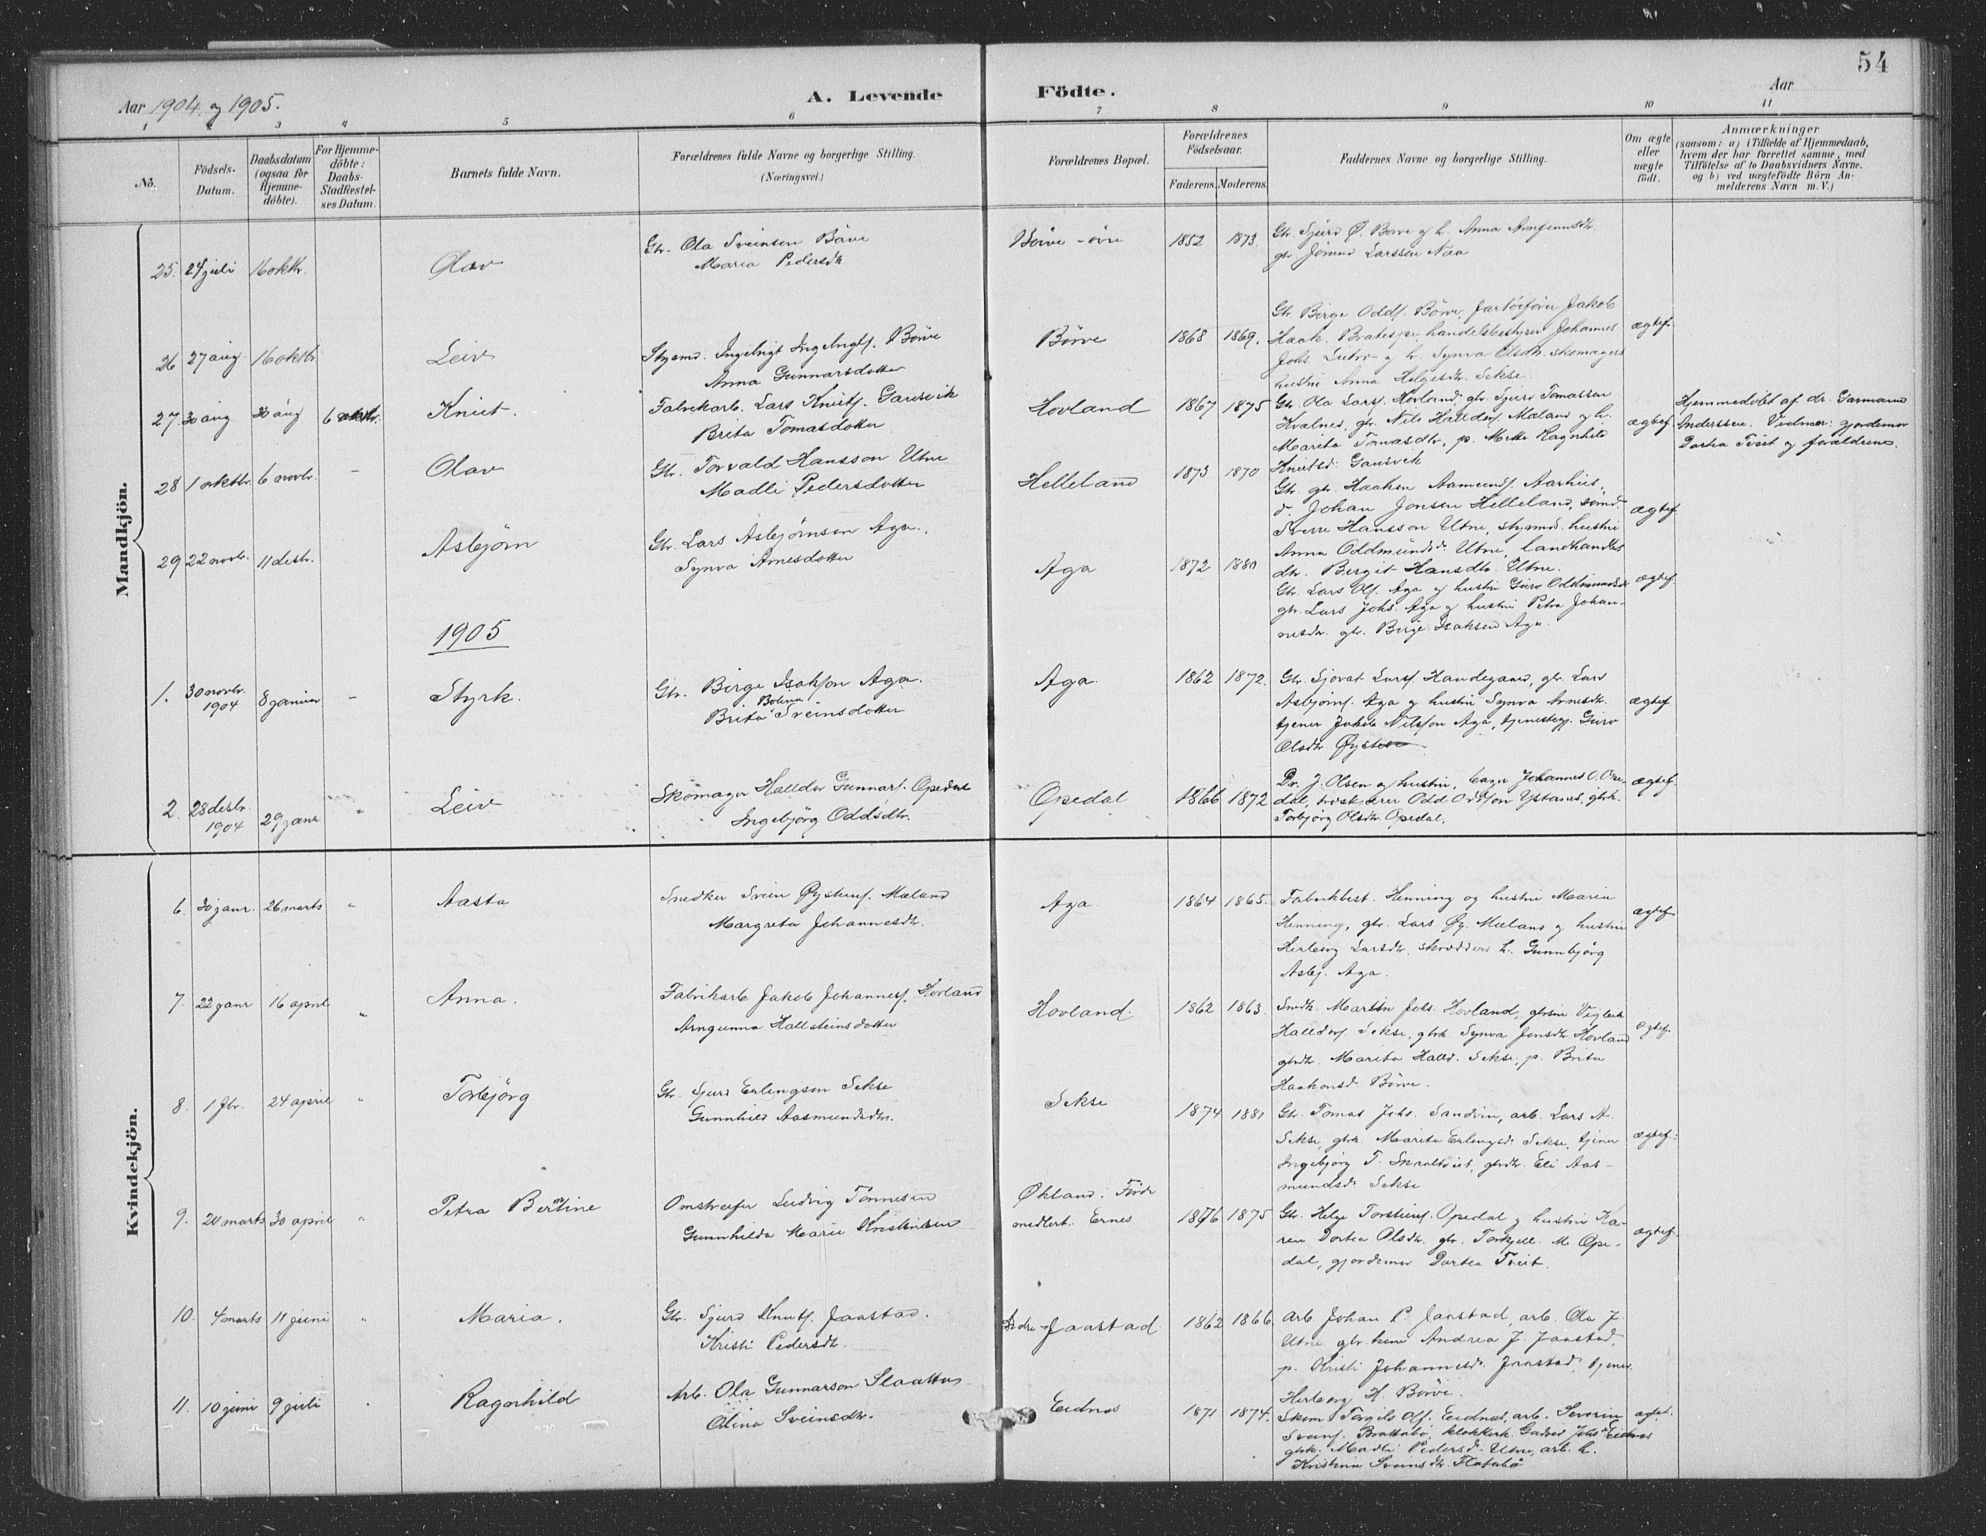 54
Aar 1904 og 1905.
A. Levende
Födte.
Aar
1 2 3 4 5 6 7 8 9 10 11
No.
Födsels-Datum.
Daabsdatum (ogsaa for Hjemme-döbte).
For Hjemme-döbte: Daabs-Stadfæstel-ses Datum.
Barnets fulde Navn.
Forældrenes fulde Navne og borgerlige Stilling.
(Næringsvei.)
Forældrenes Bopæl.
Forældrenes Födselsaar.
Faderens. Moderens.
Faddernes Navne og borgerlige Stilling.
Om ægte eller uægte födt.
Anmærkninger
(saasom: a) i Tilfælde af Hjemmedaab,
hvem der har forrettet samme, med
Tilföielse af to Daabsvidners Navne.
og b) ved uægtefödte Börn An-
melderens Navn m. V.)
Mandkjön.
25. 24 juli 16 oktbr. Olav
Gbr. Ola Sveinsen Börve
Maria Pedersdtr
Börve - övre 1852 1873
Gbr. Sjurd Ö. Børve og h. Anna Arnfinnsdtr.
gbr Jørund Larssen Naa
26 27 aug 16 oktbr. Leiv
Styrmd. Ingebrigt Ingebrigts. Börve
Anna Gunnarsdotter
Börve 1868 1869. ægtef.
Gbr. Birge Odds. Börve, fartöiförer Jakob
Haak. handelsbestyrer Johannes
Johs. og h. Synva Olsdtr. skomagers
hustru Anna Helgesdtr. Sekse.
27. 30 aug 30 aug 6 oktbr. Knut.
Fabrikarb. Lars Knuts. Gausvik
Brita Tomasdotter
Hovland 1867 1875 ægtef
Gbr. Ola Lars. Hovland, gbr. Sjurd Tomassen
Kvalnes, gbr. Nils Halldors. Mæland og h.
Marita Tomasdtr, p. Ragnhild
Knutsd. Gausvik
Hjemmedöbt af dr. Garmann
Anderssen. Vidner: gjordemor
Dortea Tveit og forældrene.
28 1 oktbr. 6 novbr. - Olav
Gbr. Torvald Hansson Utne
Madli Pedersdotter
Helleland 1873 1870 ægtef.
Gbr. gbr. Haakon Aamunds. Aarhus,
d. Johan Jonsen Helleland,
Sverre Hansson Utne, styrmd. hustru
Anna Oddmundsd. Utne, landhandlers
dtr. Birgit Hansdtr. Utne.
29 22 novbr. 11 desbr. Asbjörn
Gbr. Lars Asbjørnsen Aga.
Synva Arnesdotter
Aga 1872 1880 ægtef.
Gbr. Lars Ols. Aga og hustru Guro Oddmundsdtr
gbr. Lars Johs. Aga og hustru Petra Johan-
nesdtr. gbr. Birge Isaksen Aga.
1905
1. 30 novbr. 1904 8 januar - Styrk.
Gbr. Birge Isaksson Aga.
Brita Bolina Sveinsdotter
Aga. 1862 1872. ægtef
Gbr. Sjovat Lars. Handegaard, gbr. Lars
Asbjörns. Aga og hustru Synva Arnesdtr.
tjener Jakob Nilsson Aga, tjenestepg. Guro
Olsdtr. Øystese
2. 28 desbr. 1904 29 janr " Leiv
Skomager Halldor Gunnars. Opedal
Ingebjörg Oddsdtr.
Opedal 1866 1872 ægtef.
Dr. J. Olsen og hustru, Johannes O. Ope-
dal, Odd Oddson Ystanes, gbrk.
Torbjörg Olsdtr. Opedal.
Kvindekjön.
6. 30 janr. 26 marts " Aasta
Snedker Svein Øysteins. Mæland
Margreta Johannesdtr.
Aga 1864 1865. ægtef
Fabrikbest. Henning og hustru Maria
Henning, gbr. Lars Øy. Mæland og hustru
Herborg Larsdtr. skrædders h. Gunnbjörg
Asbj. Aga.
7. 22 janr 16 april " Anna.
Fabrikarb. Jakob Johannes. Hovland
Arngunna Hallsteinsdotter
Hovland. 1862 1863. ægtef.
Snedk. Martin Johs. Hovland, gbrsøn Vigleik
Halldors Sekse, gbrk. Synva Jonsdtr Hovland
gbrdtr. Marita Halld. Sekse, p. Brita
Haakonsd. Börve.
8. 1 fbr. 24 april " Torbjörg
Gbr. Sjurd Erlingsen Sekse
Gunnhild Aasmundsdtr.
Sekse 1874 1881 ægtef.
Gbr. Tomas Johs. Sandvin, arb. Lars A.
Sekse, gbrk. Marita Erlingsd. Sekse, tjener
Ingebjörg T. gbrdtr. Eli Aas-
mundsd. Sekse
9. 20 marts 30 april " Petra Bertine
Omstreifer Ludvig Tönnesen
Gunnhilda Marie Kristensen
Økland i Förde
1876 1875 ægtef.
Gbr. Helge Torsteins. Opedal og hustru Ka-
ren Dortea Olsdtr. gbr. Torkjell M. Ope-
dal, gjordemor Dortea Tveit.
10. 4 marts 11 juni " Maria.
Gbr. Sjurd Knuts. Jaastad.
Kristi Pedersdtr.
Jaastad 1862 1866
Arb. Johan P. Jaastad, arb. Ola J.
Utne, gbr. kone Andrea J. Jaastad,
p. Kristi Johannesd. Jaastad, tjener
Herborg H. Börve.
11. 10 juni 9 juli Ragnhild
Arb. Ola Gunnarson Slaattun
Olina Sveinsdtr.
Eidnes 1871 1874. ægtef.
Skom Torgils Ols. Eidnes, arb. Severin
Sveins. Brattabö, klokkerk. Gudrid Johs. Eidnes
gbrk. Madli Pedersd. Utne, arb. h.
Kristina Sveinsdtr. Flatabö